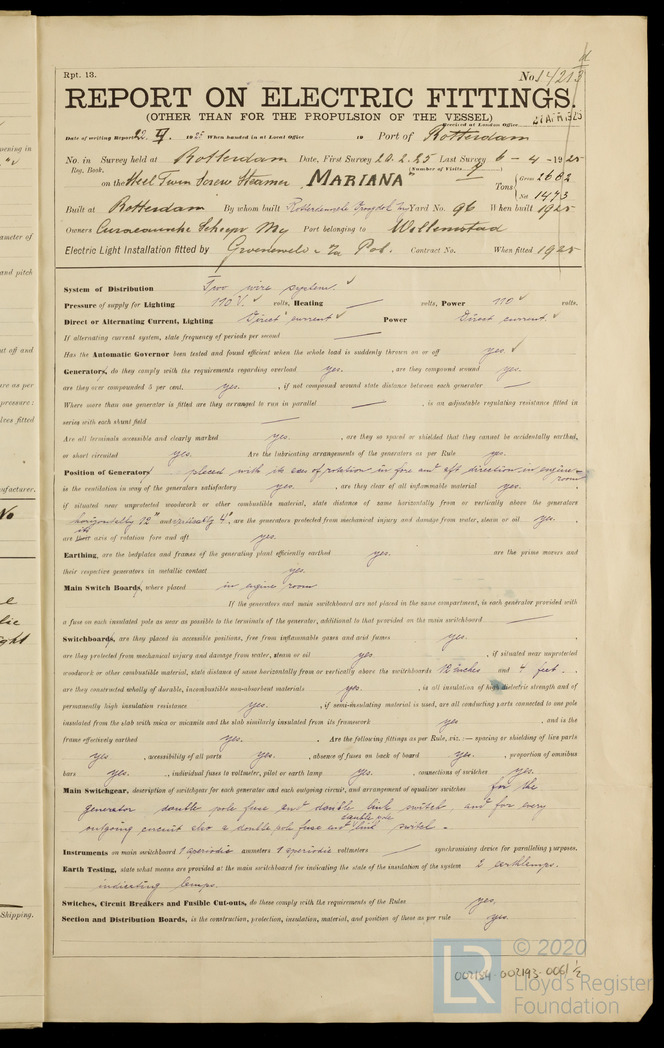 Rpt. 13.
No 14213
REPORT ON ELECTRIC FITTINGS.
(OTHER THAN FOR THE PROPULSION OF THE VESSEL)
Received at London Office
Date of writing Report 22. IV. 1925 When handed in at Local Office 19 Port of Rotterdam
No. in Survey held at Rotterdam Date, First Survey 20.2.25 Last Survey 6 - 4 - 1925
Reg. Book. (Number of Visits 7)
on the Steel Twin Screw Steamer "MARIANA" Tons { Gross 2662
Net 1473
Built at Rotterdam By whom built Yard No. 96 When built 1925
Owners Curacaosche Scheepv My Port belonging to Willemstad
Electric Light Installation fitted by Contract No. When fitted 1925
System of Distribution Two wire system ✓
Pressure of supply for Lighting 110 V. ✓ volts, Heating — volts, Power 110 ✓ volts.
Direct or Alternating Current, Lighting Direct current ✓ Power Direct current ✓
If alternating current system, state frequency of periods per second —
Has the Automatic Governor been tested and found efficient when the whole load is suddenly thrown on or off yes. ✓
Generators, do they comply with the requirements regarding overload yes. , are they compound wound yes.
are they over compounded 5 per cent. yes. , if not compound wound state distance between each generator —
Where more than one generator is fitted are they arranged to run in parallel — , is an adjustable regulating resistance fitted in
series with each shunt field —
Are all terminals accessible and clearly marked yes. , are they so spaced or shielded that they cannot be accidentally earthed,
or short circuited yes. Are the lubricating arrangements of the generators as per Rule yes.
Position of Generator placed with its axe of rotation in fore and aft direction in engine room
is the ventilation in way of the generators satisfactory yes. , are they clear of all inflammable material yes.
if situated near unprotected woodwork or other combustible material, state distance of same horizontally from or vertically above the generators
horizontally 12" and vertically 4' , are the generators protected from mechanical injury and damage from water, steam or oil yes.
are its axis of rotation fore and aft yes.
Earthing, are the bedplates and frames of the generating plant efficiently earthed yes. are the prime movers and
their respective generators in metallic contact yes.
Main Switch Boards, where placed in engine room
If the generators and main switchboard are not placed in the same compartment, is each generator provided with
a fuse on each insulated pole as near as possible to the terminals of the generator, additional to that provided on the main switchboard —
Switchboards, are they placed in accessible positions, free from inflammable gases and acid fumes yes.
are they protected from mechanical injury and damage from water, steam or oil yes. , if situated near unprotected
woodwork or other combustible material, state distance of same horizontally from or vertically above the switchboards 12 inches and 4 feet.
are they constructed wholly of durable, incombustible non-absorbent materials yes. , is all insulation of high dielectric strength and of
permanently high insulation resistance yes. , if semi-insulating material is used, are all conducting parts connected to one pole
insulated from the slab with mica or micanite and the slab similarly insulated from its framework yes , and is the
frame effectively earthed yes. . Are the following fittings as per Rule, viz.:— spacing or shielding of live parts
yes. , accessibility of all parts yes. , absence of fuses on back of board yes. , proportion of omnibus
bars yes. , individual fuses to voltmeter, pilot or earth lamp yes. , connections of switches yes.
Main Switchgear, description of switchgear for each generator and each outgoing circuit, and arrangement of equalizer switches for the
generator double pole fuse and double link switch, and for every
outgoing circuit also a double pole fuse and double pole link switch.
Instruments on main switchboard 1 aperiodic ammeters 1 aperiodic voltmeters — synchronising device for paralleling purposes.
Earth Testing, state what means are provided at the main switchboard for indicating the state of the insulation of the system 2 earthlamps.
indicating lamps.
Switches, Circuit Breakers and Fusible Cut-outs, do these comply with the requirements of the Rules yes.
Section and Distribution Boards, is the construction, protection, insulation, material, and position of these as per rule yes.
002184-002193-0061 1/2
LR
© 2020
Lloyd's Register
Foundation
No
Shipping.